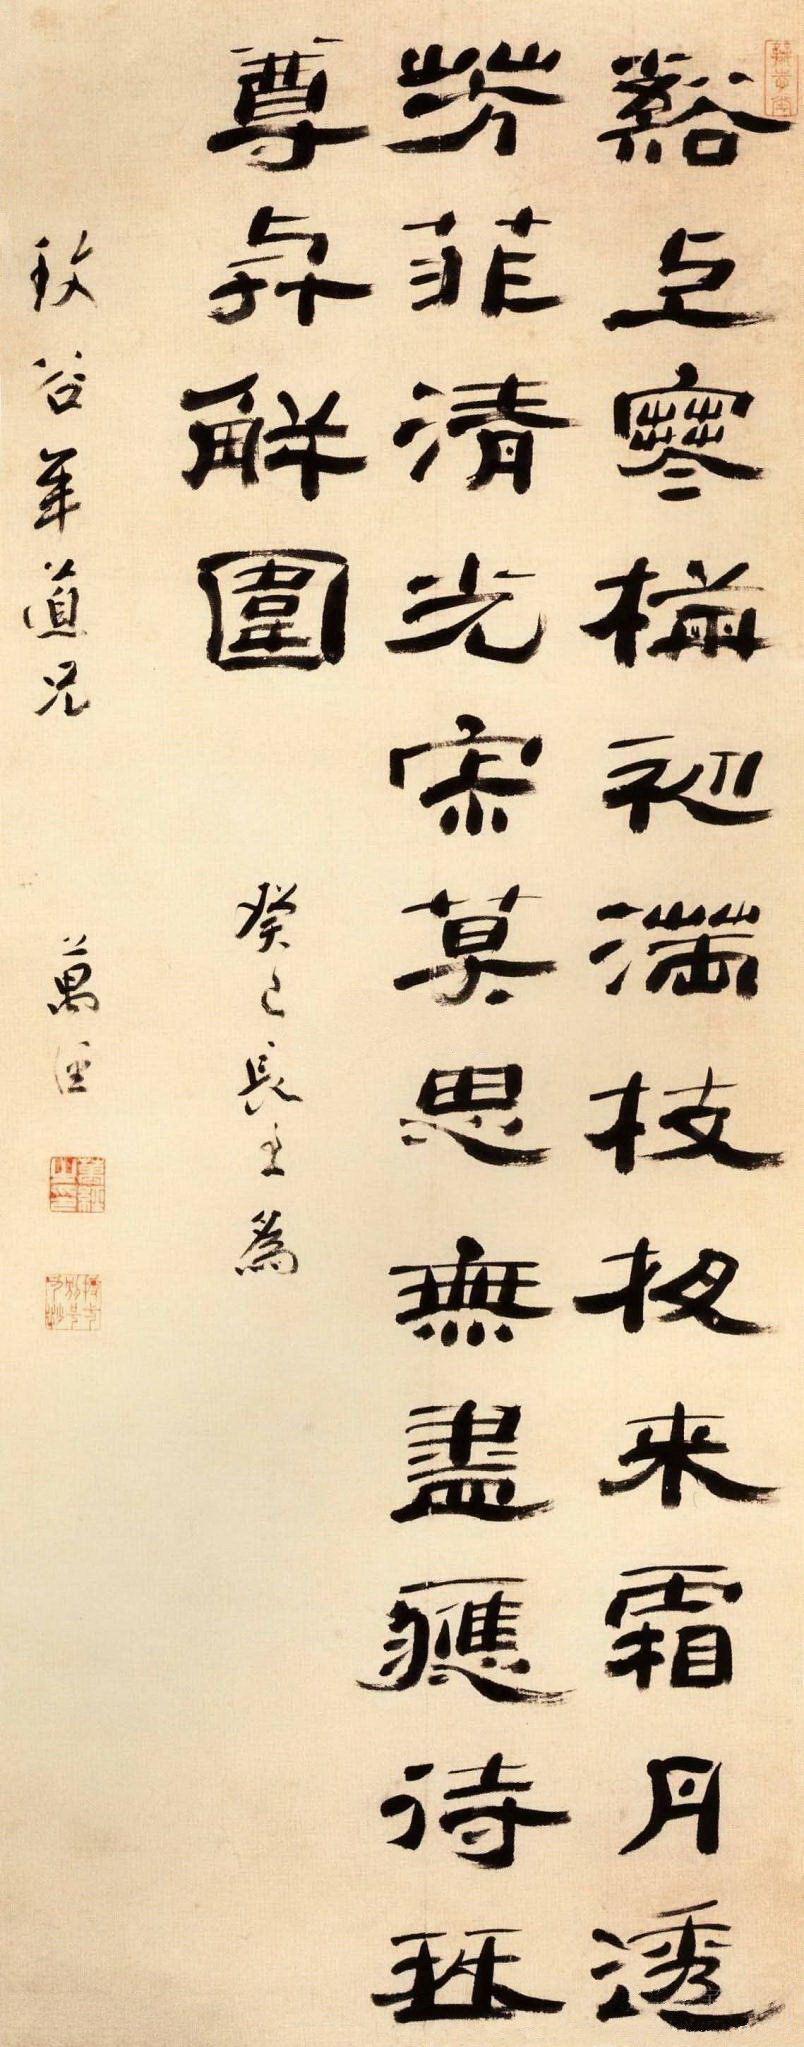 谿上寒梅初滿枝夜来霜月透
芳菲清光寂莫思無盡應待琴
尊與解圍 癸巳長至為
玫谷年道兄 萬經
萬經之印